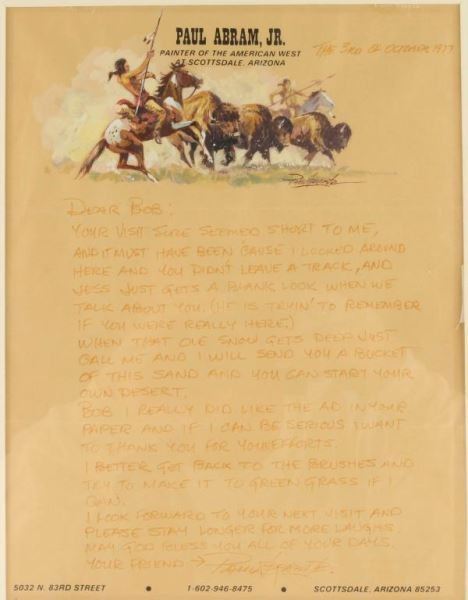 PAUL ABRAM, JR.
PAINTER OF THE AMERICAN WEST
AT SCOTTSDALE, ARIZONA
THE 3RD OF OCTOBER 1977
DEAR BOB:
YOUR VISIT SURE SEEMED SHORT TO ME,
AND IT MUST HAVE BEEN CAUSE I LOOKED AROUND
HERE AND YOU DIDN'T LEAVE A TRACK, AND
JESS JUST GETS A BLANK LOOK WHEN WE
TALK ABOUT YOU. (HE IS TRYIN' TO REMEMBER
IF YOU WERE REALLY HERE.)
WHEN THAT OLE SNOW GETS DEEP JUST
CALL ME AND I WILL SEND YOU A BUCKET
OF THIS SAND AND YOU CAN START YOUR
OWN DESERT.
BOB I REALLY DID LIKE THE AD IN YOUR
PAPER AND IF I CAN BE SERIOUS I WANT
TO THANK YOU FOR YOUR EFFORTS.
I BETTER GET BACK TO THE BRUSHES AND
TRY TO MAKE IT TO GREEN GRASS IF I
CAN.
I LOOK FORWARD TO YOUR NEXT VISIT AND
PLEASE STAY LONGER FOR MORE LAUGHS.
MAY GOD BLESS YOU ALL OF YOUR DAYS.
YOUR FRIEND →
5032 N. 83RD STREET • 1-602-946-8475 • SCOTTSDALE, ARIZONA 85253